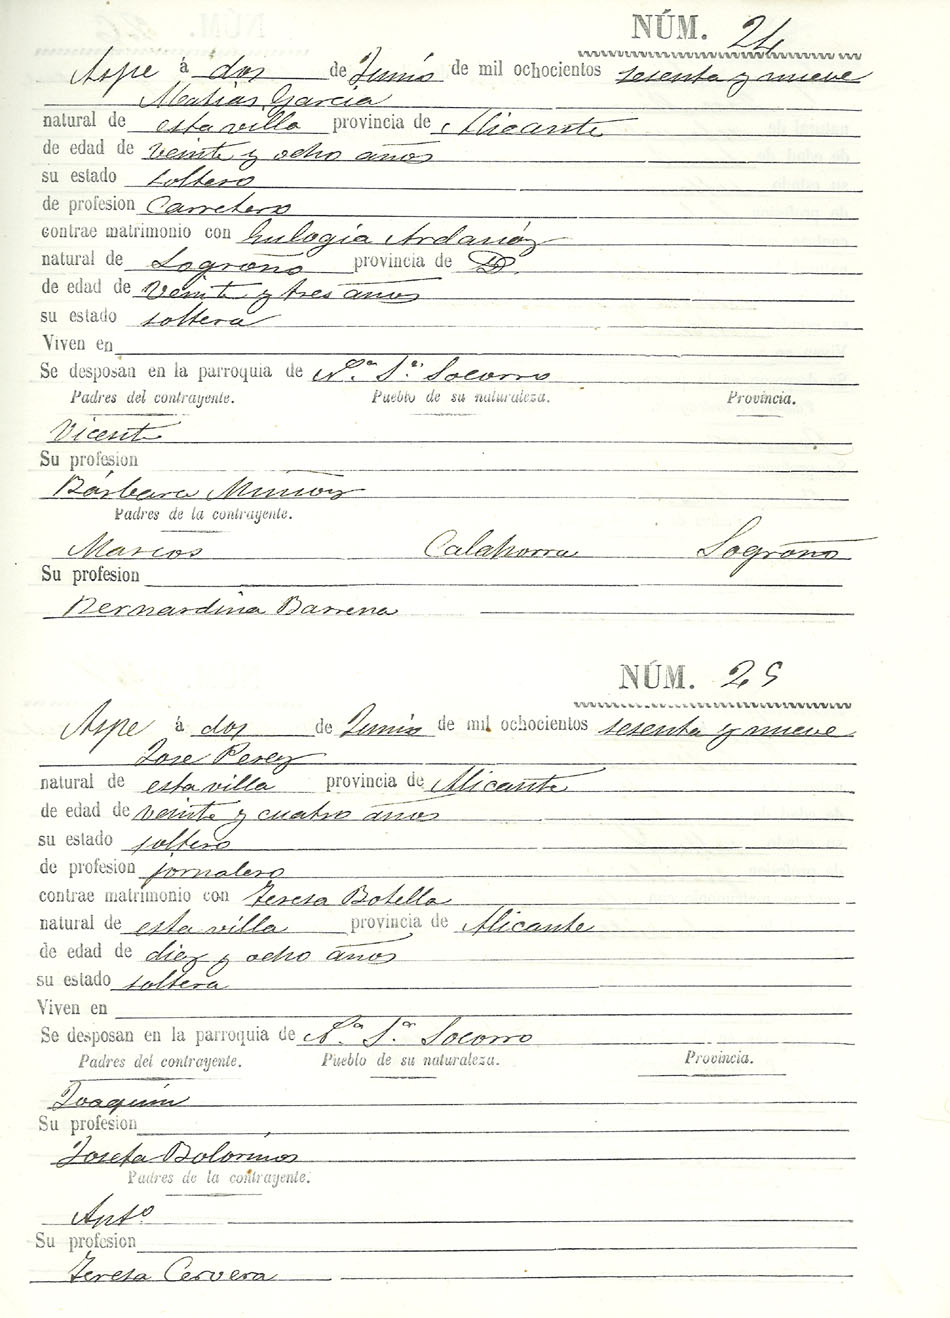 NÚM. 24
Aspe á dos de Junio de mil ochocientos sesenta y nueve
Matias Garcia
natural de esta villa provincia de Alicante
de edad de veinte y ocho años
su estado soltero
de profesion Carretero
contrae matrimonio con Eulogia Ardanóz
natural de Logroño provincia de Id.
de edad de Veinte y tres años
su estado soltera
Viven en
Se desposan en la parroquia de N.ª S.ª Socorro
Padres del contrayente. Pueblo de su naturaleza. Provincia.
Vicente
Su profesion
Bárbara Muñoz
Padres de la contrayente.
Marcos Calahorra Logroño
Su profesion
Bernardina Barrena
NÚM. 25
Aspe á dos de Junio de mil ochocientos sesenta y nueve
Jose Perez
natural de esta villa provincia de Alicante
de edad de veinte y cuatro años
su estado soltero
de profesion jornalero
contrae matrimonio con Teresa Botella
natural de esta villa provincia de Alicante
de edad de diez y ocho años
su estado soltera
Viven en
Se desposan en la parroquia de N.ª S.ª Socorro
Padres del contrayente. Pueblo de su naturaleza. Provincia.
Joaquin
Su profesion
Josefa Bolorinos
Padres de la contrayente.
Ant.º
Su profesion
Teresa Cervera